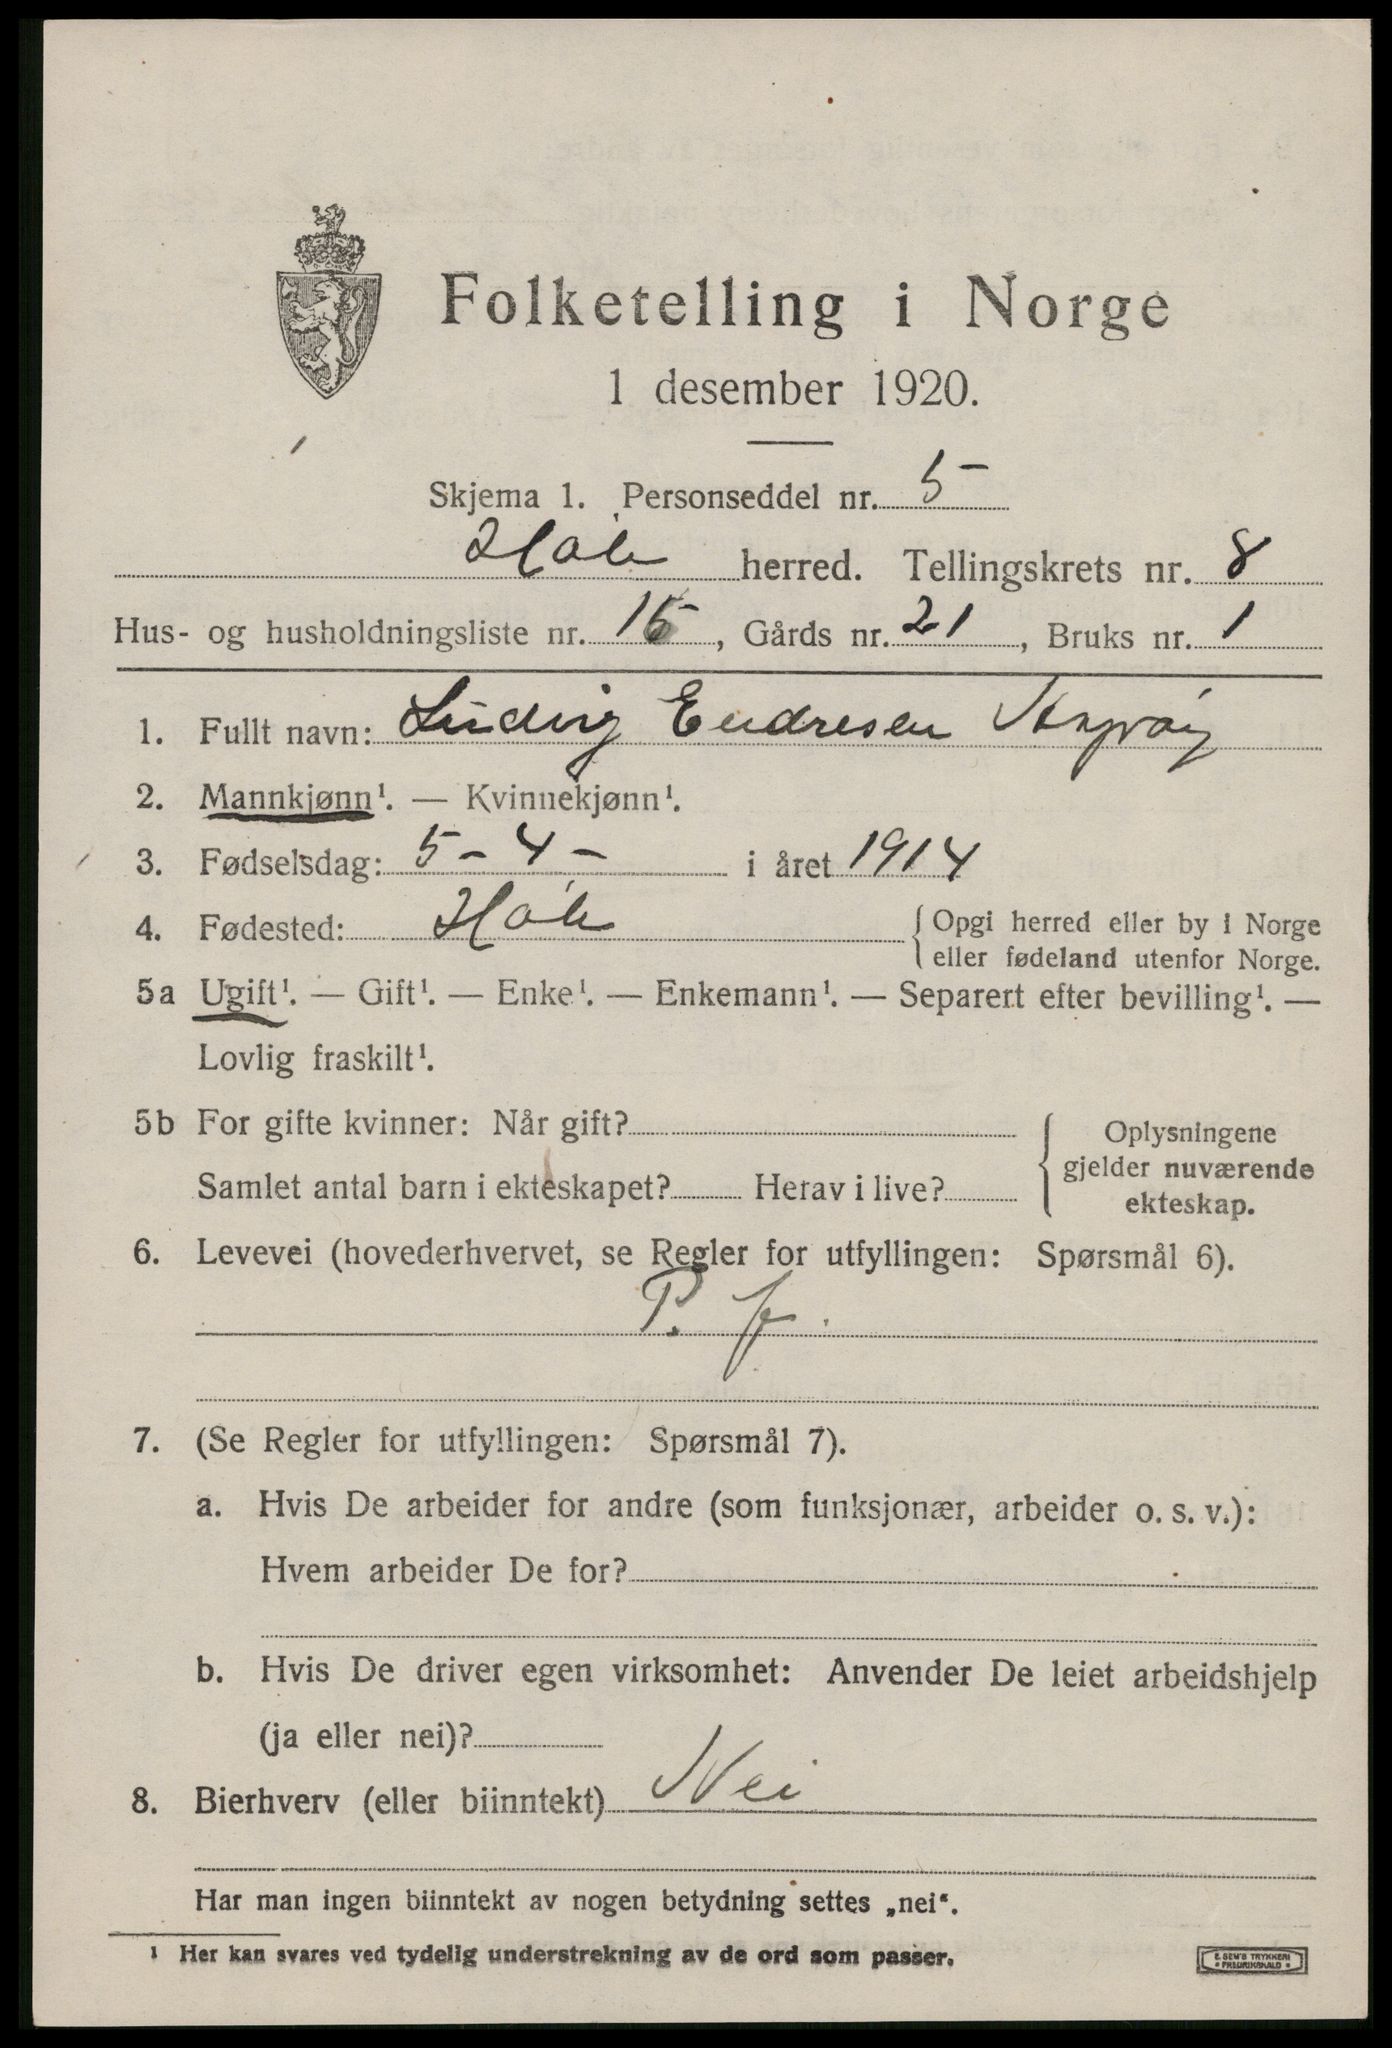 Folketelling i Norge
1 desember 1920.
Skjema 1. Personseddel nr. 5
Hole herred. Tellingskrets nr. 8
Hus- og husholdningsliste nr. 15, Gårds nr. 21, Bruks nr. 1
1. Fullt navn: Ludvig Endresen
2. Mannkjønn¹. — Kvinnekjønn¹.
3. Fødselsdag: 5 - 4 - i året 1914
4. Fødested: Hole { Opgi herred eller by i Norge
eller fødeland utenfor Norge.
5a Ugift¹. — Gift¹. — Enke¹. — Enkemann¹. — Separert efter bevilling¹. —
Lovlig fraskilt¹.
5b For gifte kvinner: Når gift?
Samlet antal barn i ekteskapet? Herav i live?
{ Oplysningene
gjelder nuværende
ekteskap.
6. Levevei (hovederhvervet, se Regler for utfyllingen: Spørsmål 6).
P. f.
7. (Se Regler for utfyllingen: Spørsmål 7).
a. Hvis De arbeider for andre (som funksjonær, arbeider o. s. v.):
Hvem arbeider De for?
b. Hvis De driver egen virksomhet: Anvender De leiet arbeidshjelp
(ja eller nei)?
8. Bierhverv (eller biinntekt) Nei
Har man ingen biinntekt av nogen betydning settes „nei“.
¹ Her kan svares ved tydelig understrekning av de ord som passer.
E. SEM'S TRYKKERI
• FREDRIKSHALD •